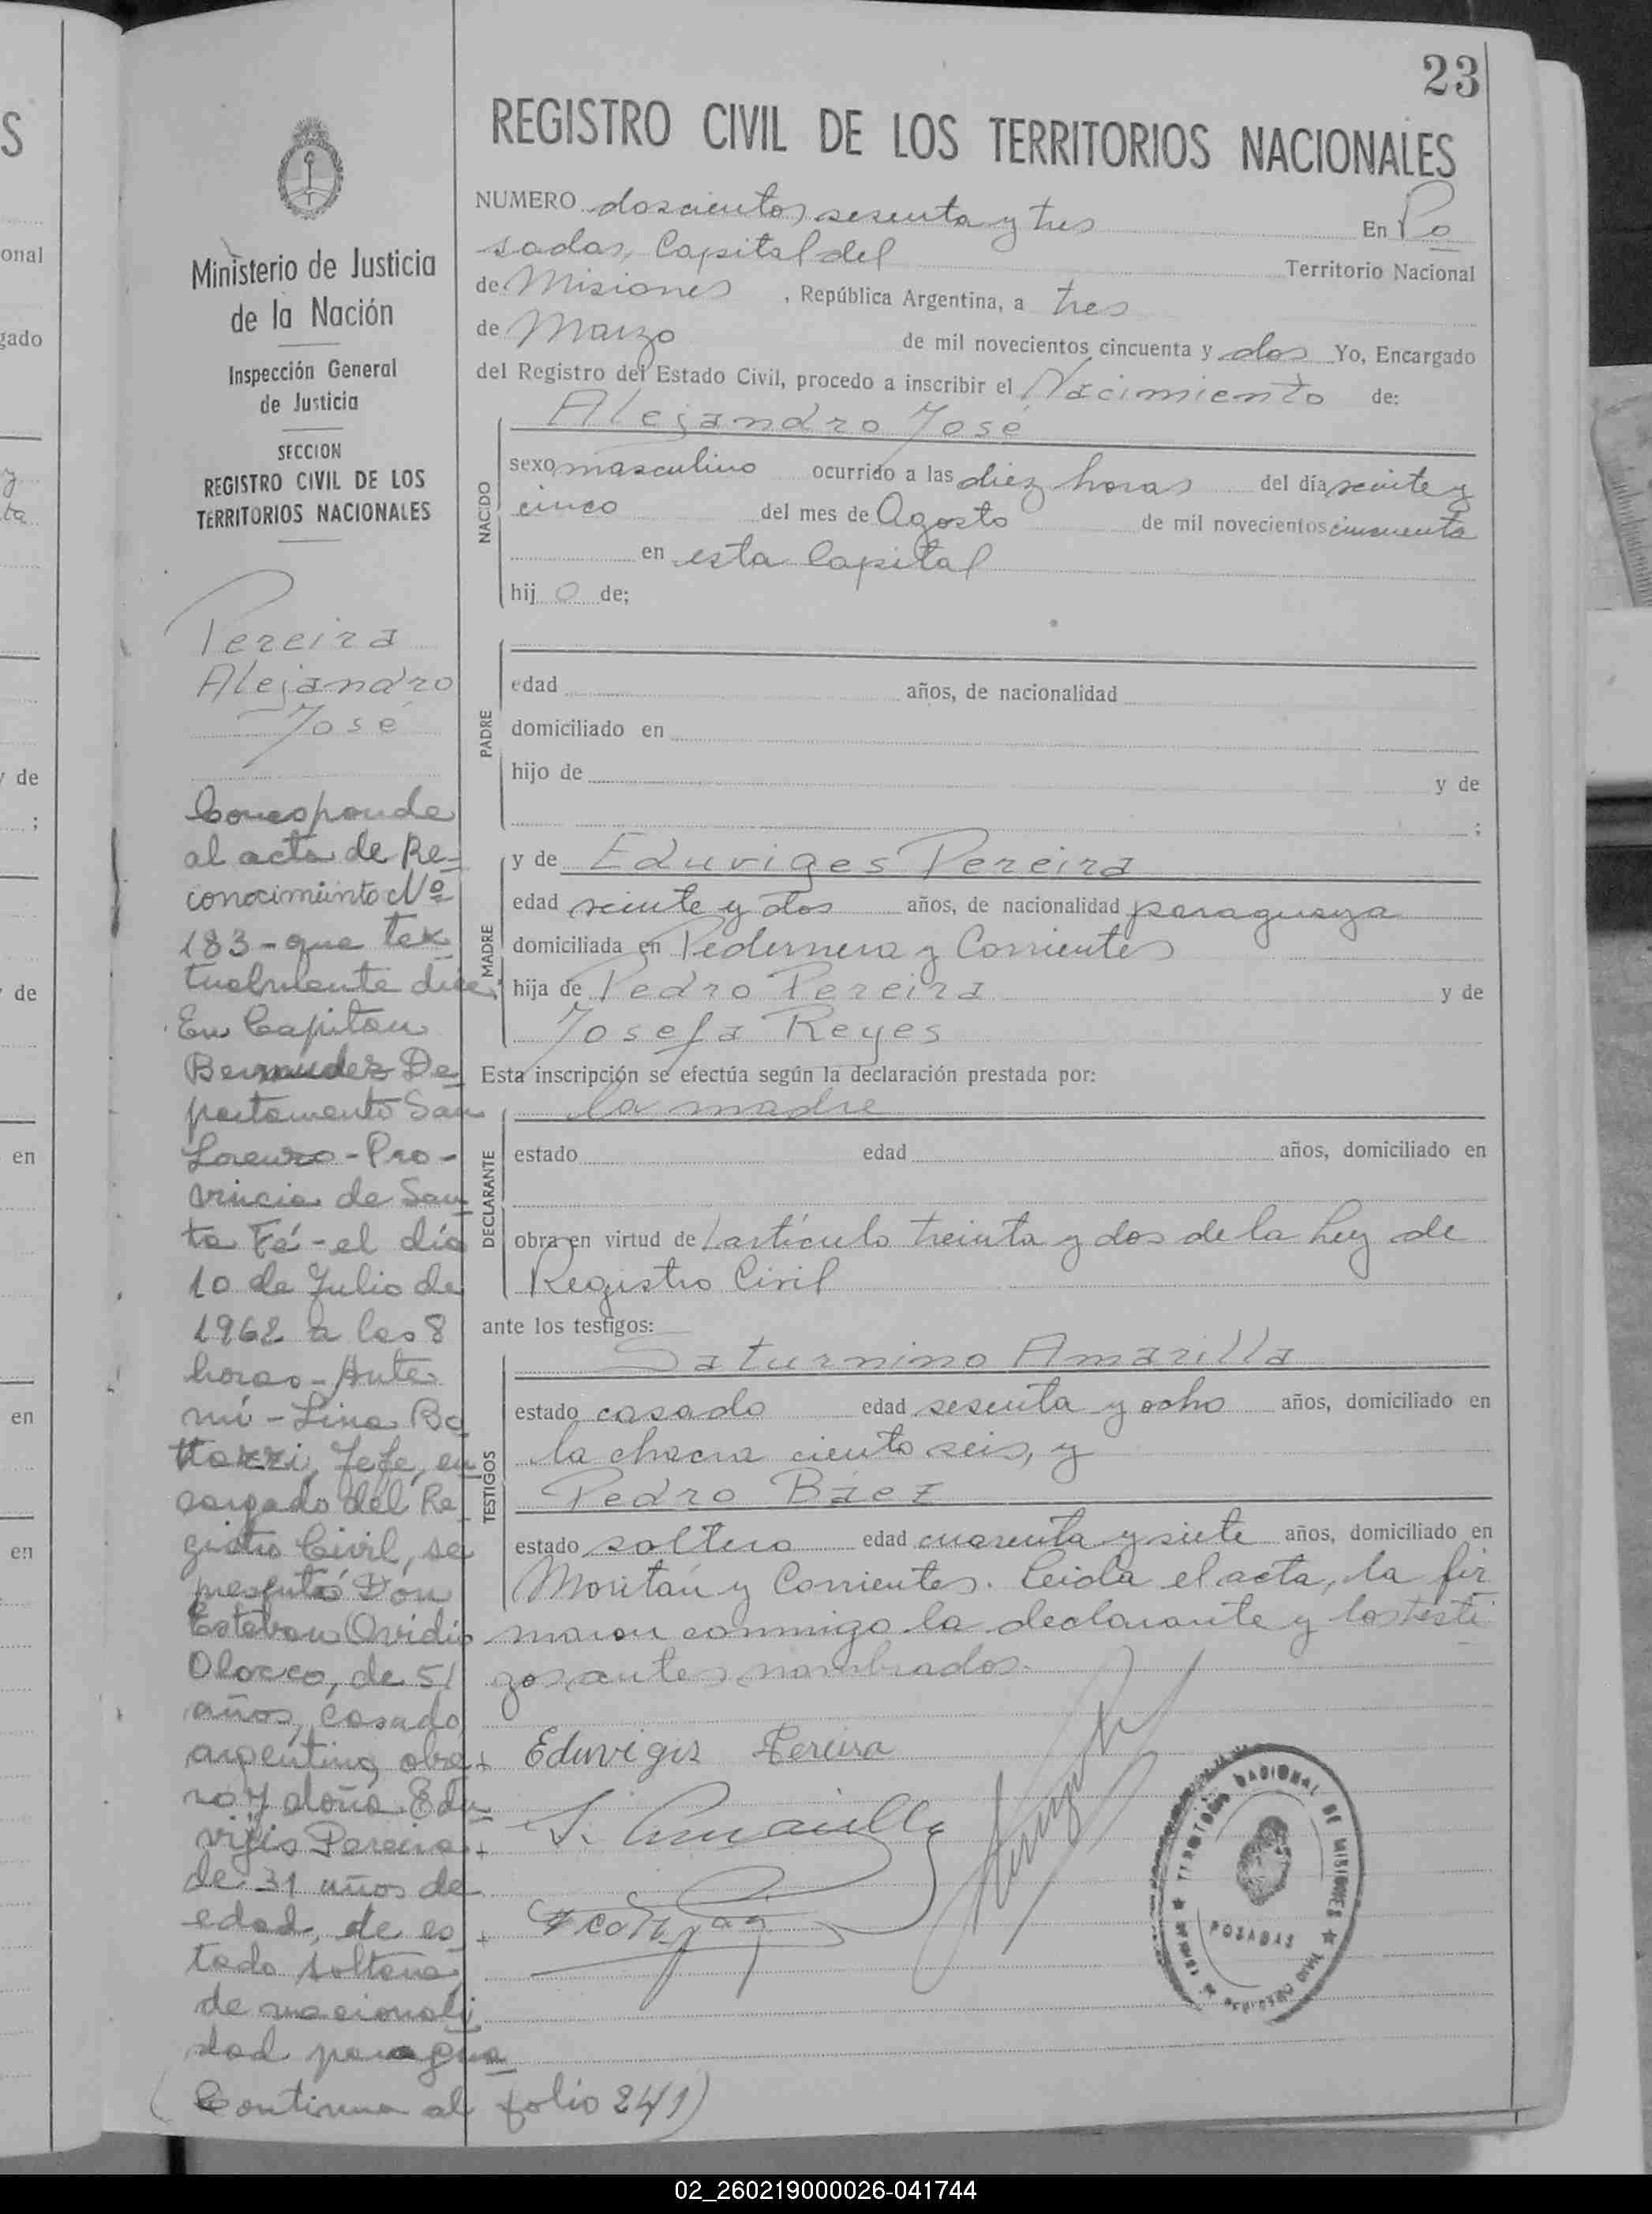 23
REGISTRO CIVIL DE LOS TERRITORIOS NACIONALES
Ministerio de Justicia
de la Nación
Inspección General
de Justicia
SECCION
REGISTRO CIVIL DE LOS
TERRITORIOS NACIONALES
Pereira
Alejandro
José
Corresponde
al acta de Re-
conocimiento Nº
183 - que tex
tualmente dice:
En Capitan
Bermudez De
partamento San
Lorenzo - Pro-
vincia de San
ta Fé - el día
10 de Julio de
1962 a las 8
horas - Ante
mi - Lina Bo
ttazzi, Jefe, en
cargado del Re
gistro Civil, se
presentó Don
Esteban Ovidio
Olocco, de 51
años, casado
argentino, obre
ro y doña Edu
vijis Pereira
de 31 años de
edad, de es
tado soltera,
de nacionali
dad paragua
(Continua al folio 241)
NUMERO doscientos sesenta y tres En Po
sadas, Capital del Territorio Nacional
de Misiones, República Argentina, a tres
de Marzo de mil novecientos cincuenta y dos Yo, Encargado
del Registro del Estado Civil, procedo a inscribir el Nacimiento de:
NACIDO
Alejandro José
sexo masculino ocurrido a las diez horas del día veinte y
cinco del mes de Agosto de mil novecientos cincuenta
en esta Capital
hij o de;
PADRE
edad años, de nacionalidad
domiciliado en
hijo de y de
;
MADRE
y de Eduviges Pereira
edad veinte y dos años, de nacionalidad paraguaya
domiciliada en Pedernera y Corrientes
hija de Pedro Pereira y de
Josefa Reyes
Esta inscripción se efectúa según la declaración prestada por:
DECLARANTE
la madre
estado edad años, domiciliado en
obra en virtud de l artículo treinta y dos de la Ley de
Registro Civil
ante los testigos:
TESTIGOS
Saturnino Amarilla
estado casado edad sesenta y ocho años, domiciliado en
la chacra ciento seis, y
Pedro Báez
estado soltero edad cuarenta y siete años, domiciliado en
Moritán y Corrientes. Leida el acta, la fir
maron conmigo la declarante y los testi
gos antes nombrados.
Eduvigis Pereira
S. Amarilla
TERRITORIO NACIONAL DE MISIONES
POSADAS
02_260219000026-041744